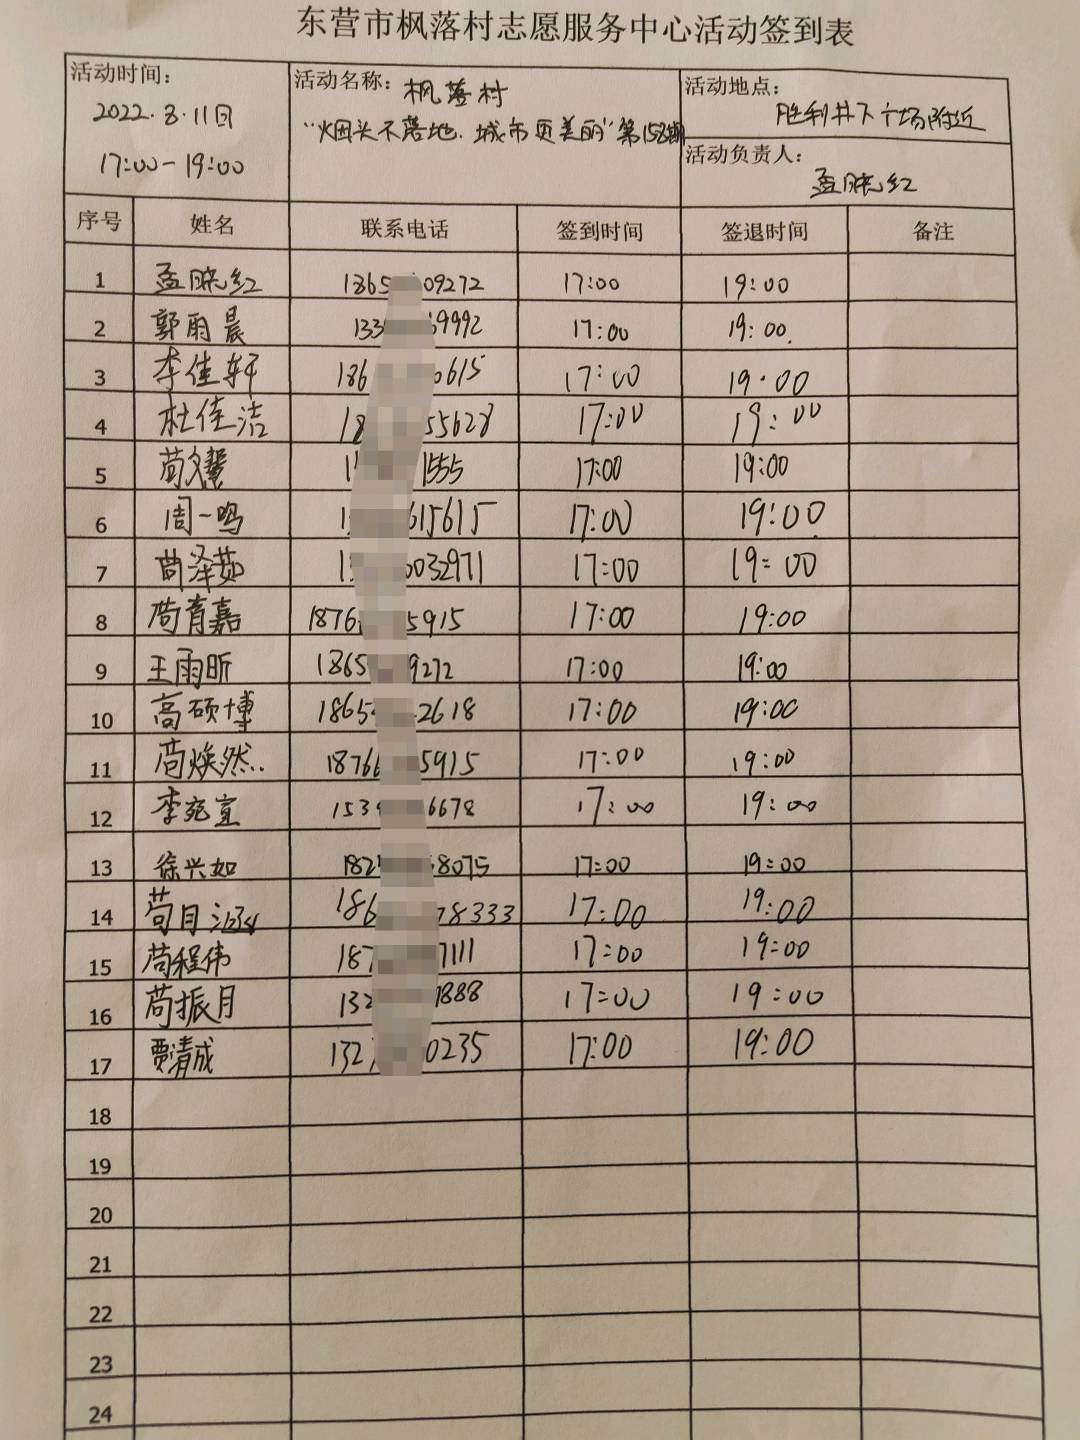 东营市枫落村志愿服务中心活动签到表
活动时间： 2022.8.11日 17:00-19:00
活动名称： 枫落村 "烟头不落地.城市更美丽"第158期
活动地点： 胜利井下广场附近
活动负责人： 孟晓红
序号 姓名 联系电话 签到时间 签退时间 备注
1 孟晓红 1865 09272 17:00 19:00
2 郭雨晨 133 69992 17:00 19:00
3 李佳轩 186 0615 17:00 19:00
4 杜佳洁 18 55628 17:00 19:00
5 苟文馨 1 1555 17:00 19:00
6 周一鸣 615615 17:00 19:00
7 苟泽茹 1 0032971 17:00 19:00
8 苟育嘉 1876 5915 17:00 19:00
9 王雨昕 1865 9272 17:00 19:00
10 高硕博 1865 2618 17:00 19:00
11 苟焕然 18766 5915 17:00 19:00
12 李宛宣 153 6678 17:00 19:00
13 徐兴如 182 8075 17:00 19:00
14 苟月涵 186 78333 17:00 19:00
15 苟程伟 187 7111 17:00 19:00
16 苟振月 132 1888 17:00 19:00
17 贾清成 132 0235 17:00 19:00
18
19
20
21
22
23
24